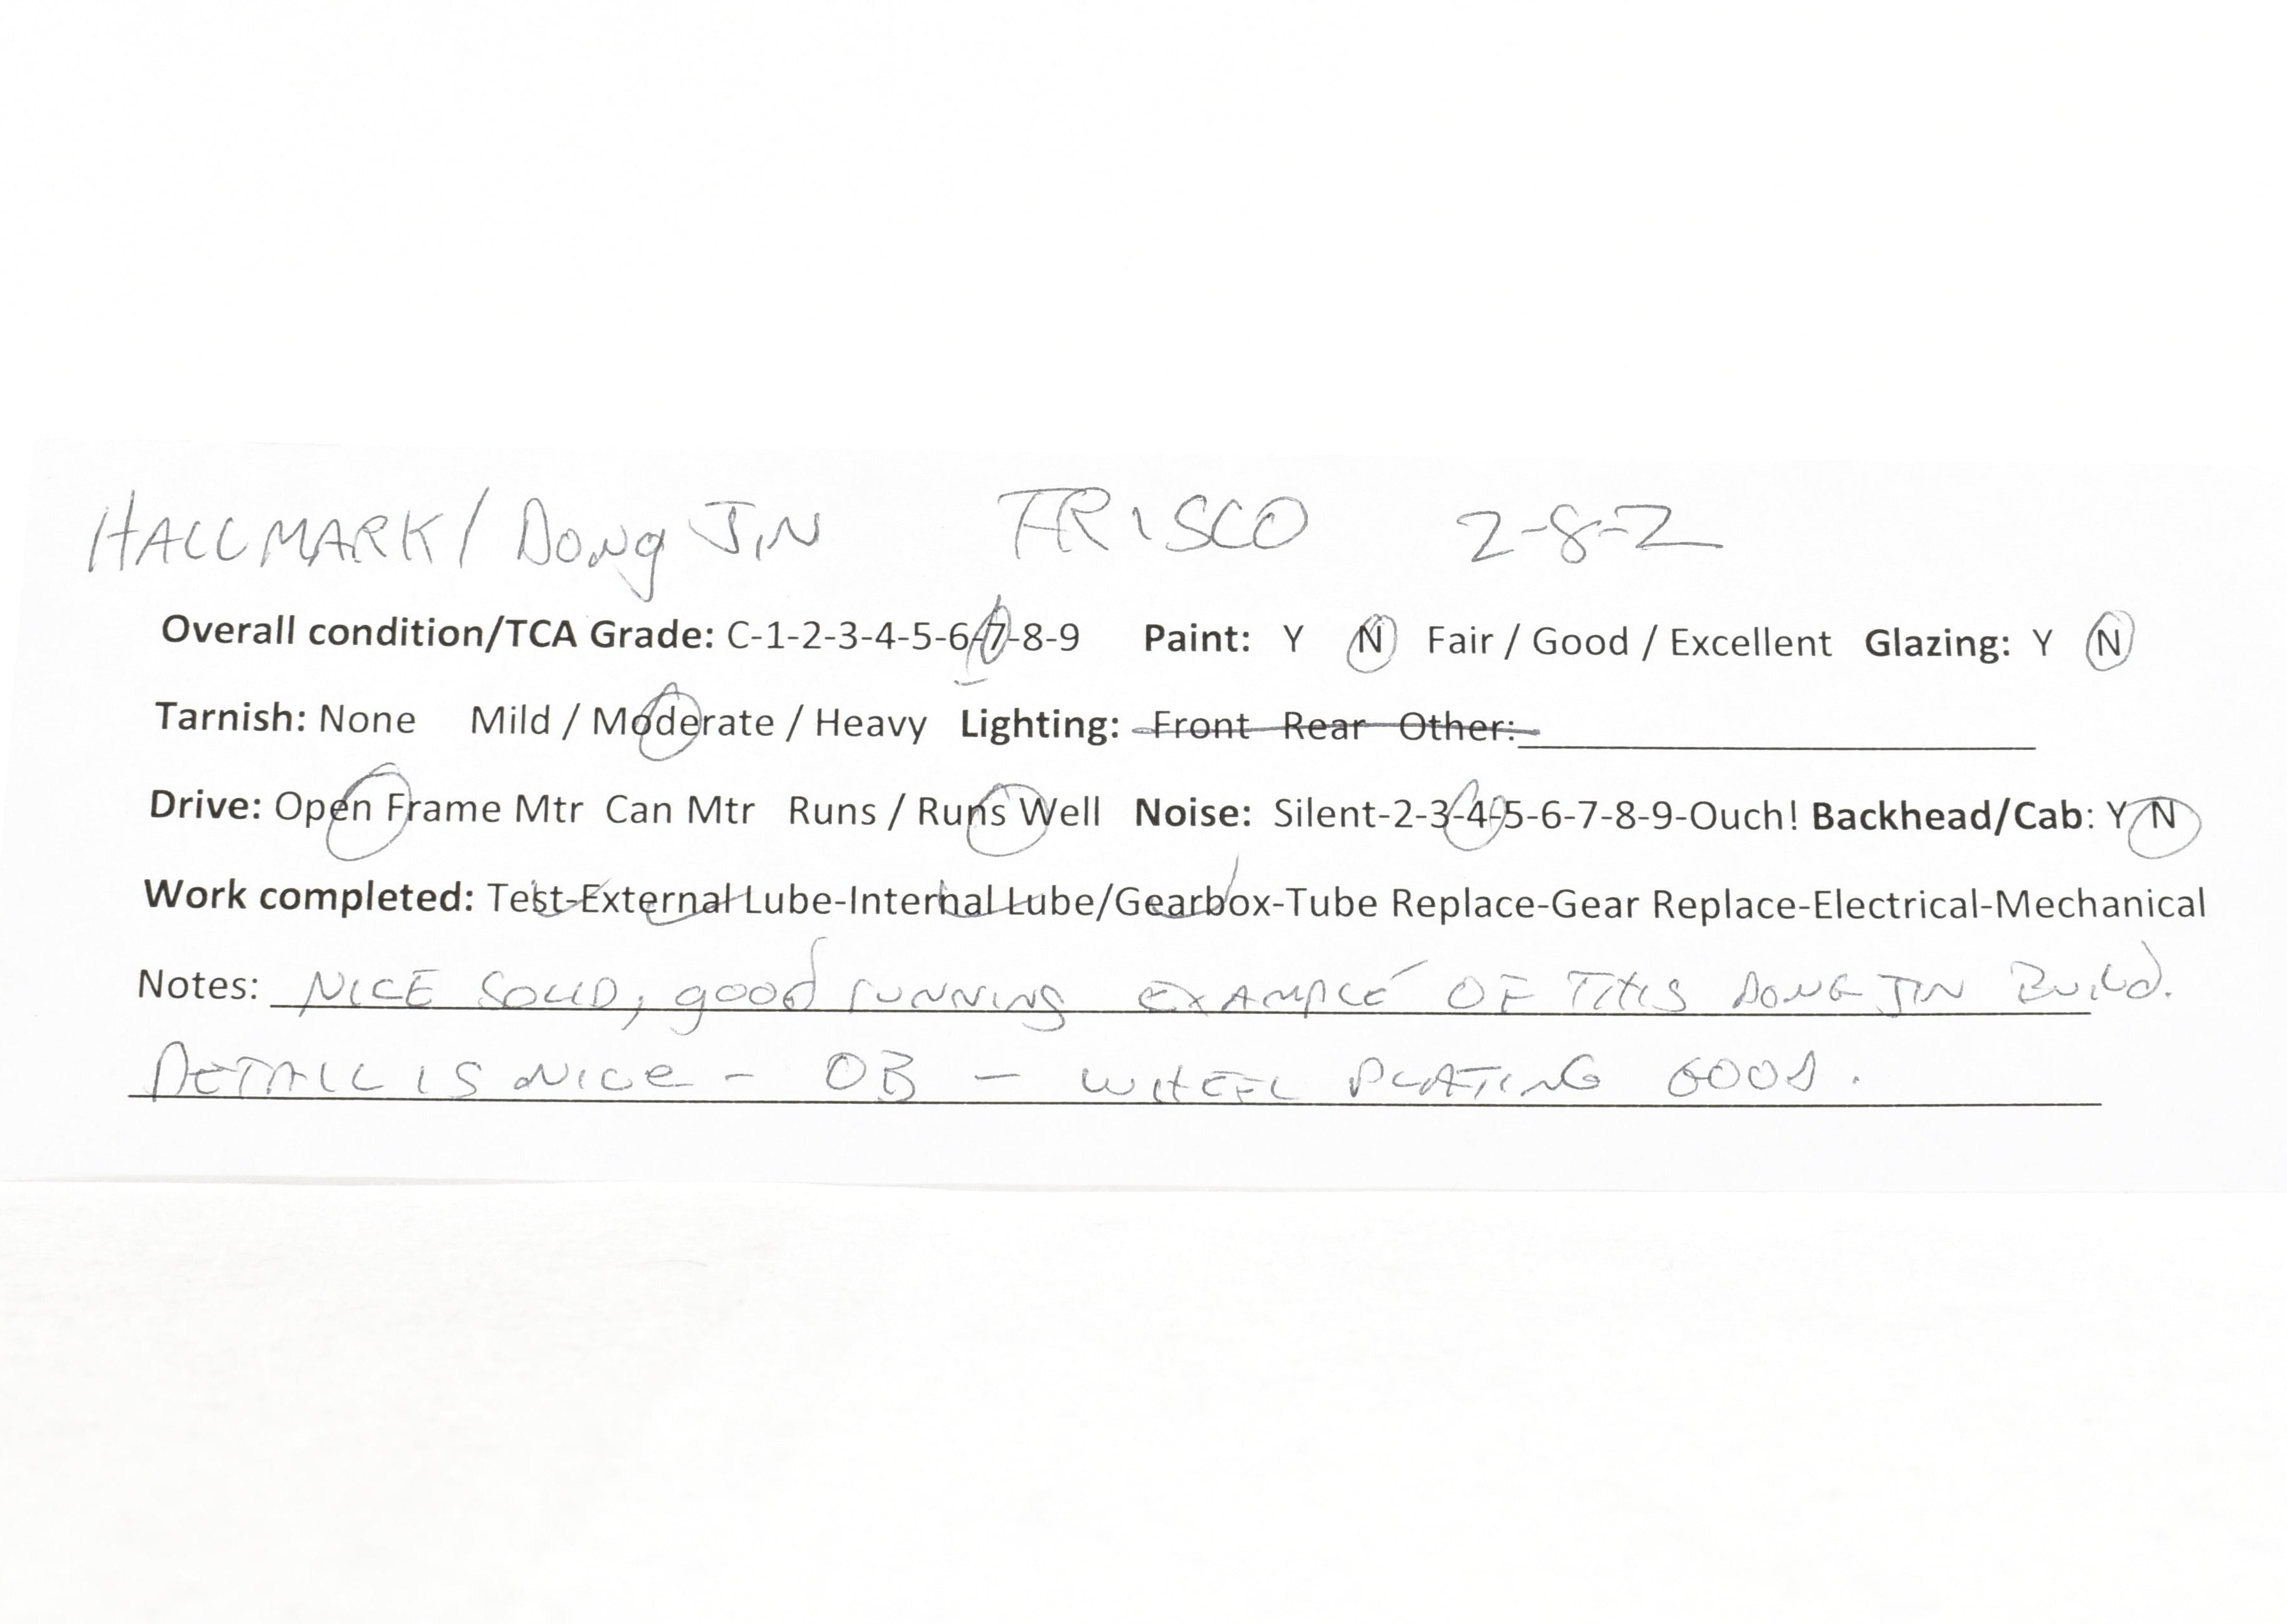 HALLMARK / Dong Jin FRISCO 2-8-2
Overall condition/TCA Grade: C-1-2-3-4-5-6-7-8-9 Paint: Y N Fair / Good / Excellent Glazing: Y N
Tarnish: None Mild / Moderate / Heavy Lighting: Front Rear Other:
Drive: Open Frame Mtr Can Mtr Runs / Runs Well Noise: Silent-2-3-4-5-6-7-8-9-Ouch! Backhead/Cab: Y N
Work completed: Test-External Lube-Internal Lube/Gearbox-Tube Replace-Gear Replace-Electrical-Mechanical
Notes: NICE SOLID, good running EXAMPLE OF THIS DONG JIN Build.
DETAIL IS NICE - OB - WHEEL PLATING GOOD.